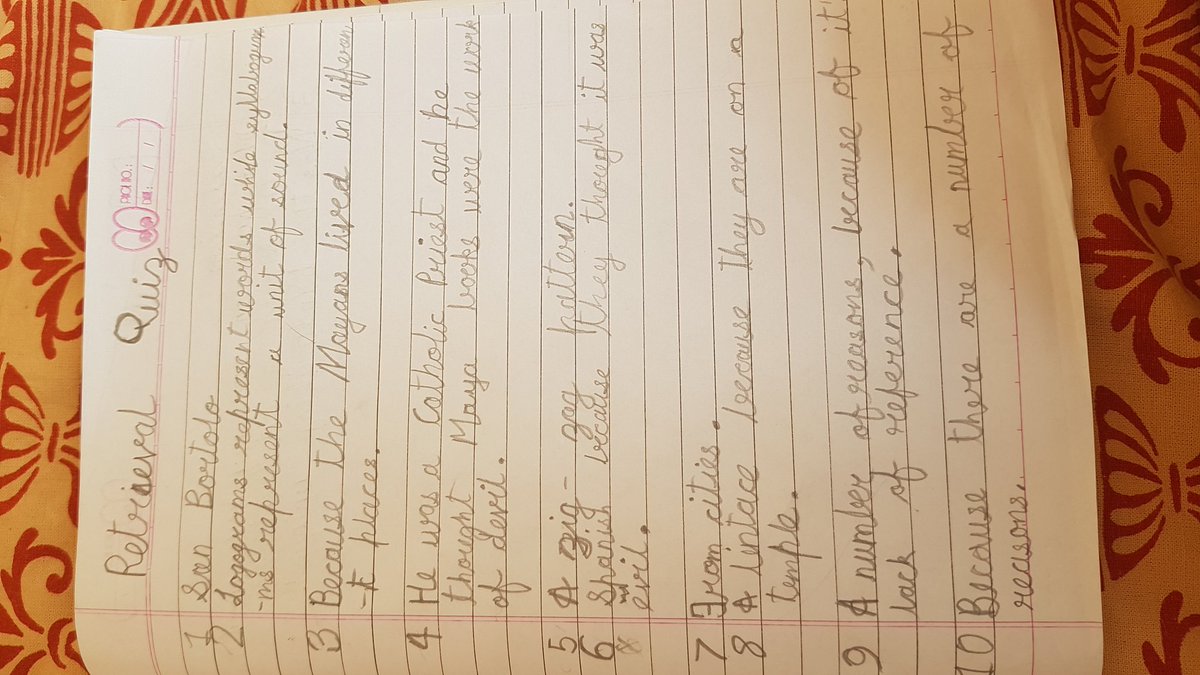 PAGE NO.:
DATE: / /
Retrieval Quiz
1 San Bortolo
2 Logograms represent words while syllabogra
-ms represent a unit of sound.
3 Because the Mayans lived in differen
-t places.
4 He was a Catholic Priest and he
thought Maya books were the work
of devil.
5 A zig-zag pattern.
6 Spanish because they thought it was
evil.
7 From cities.
8 A lintace because they are on a
temple.
9 A number of reasons, because of it's
lack of reference.
10 Because there are a number of
reasons.